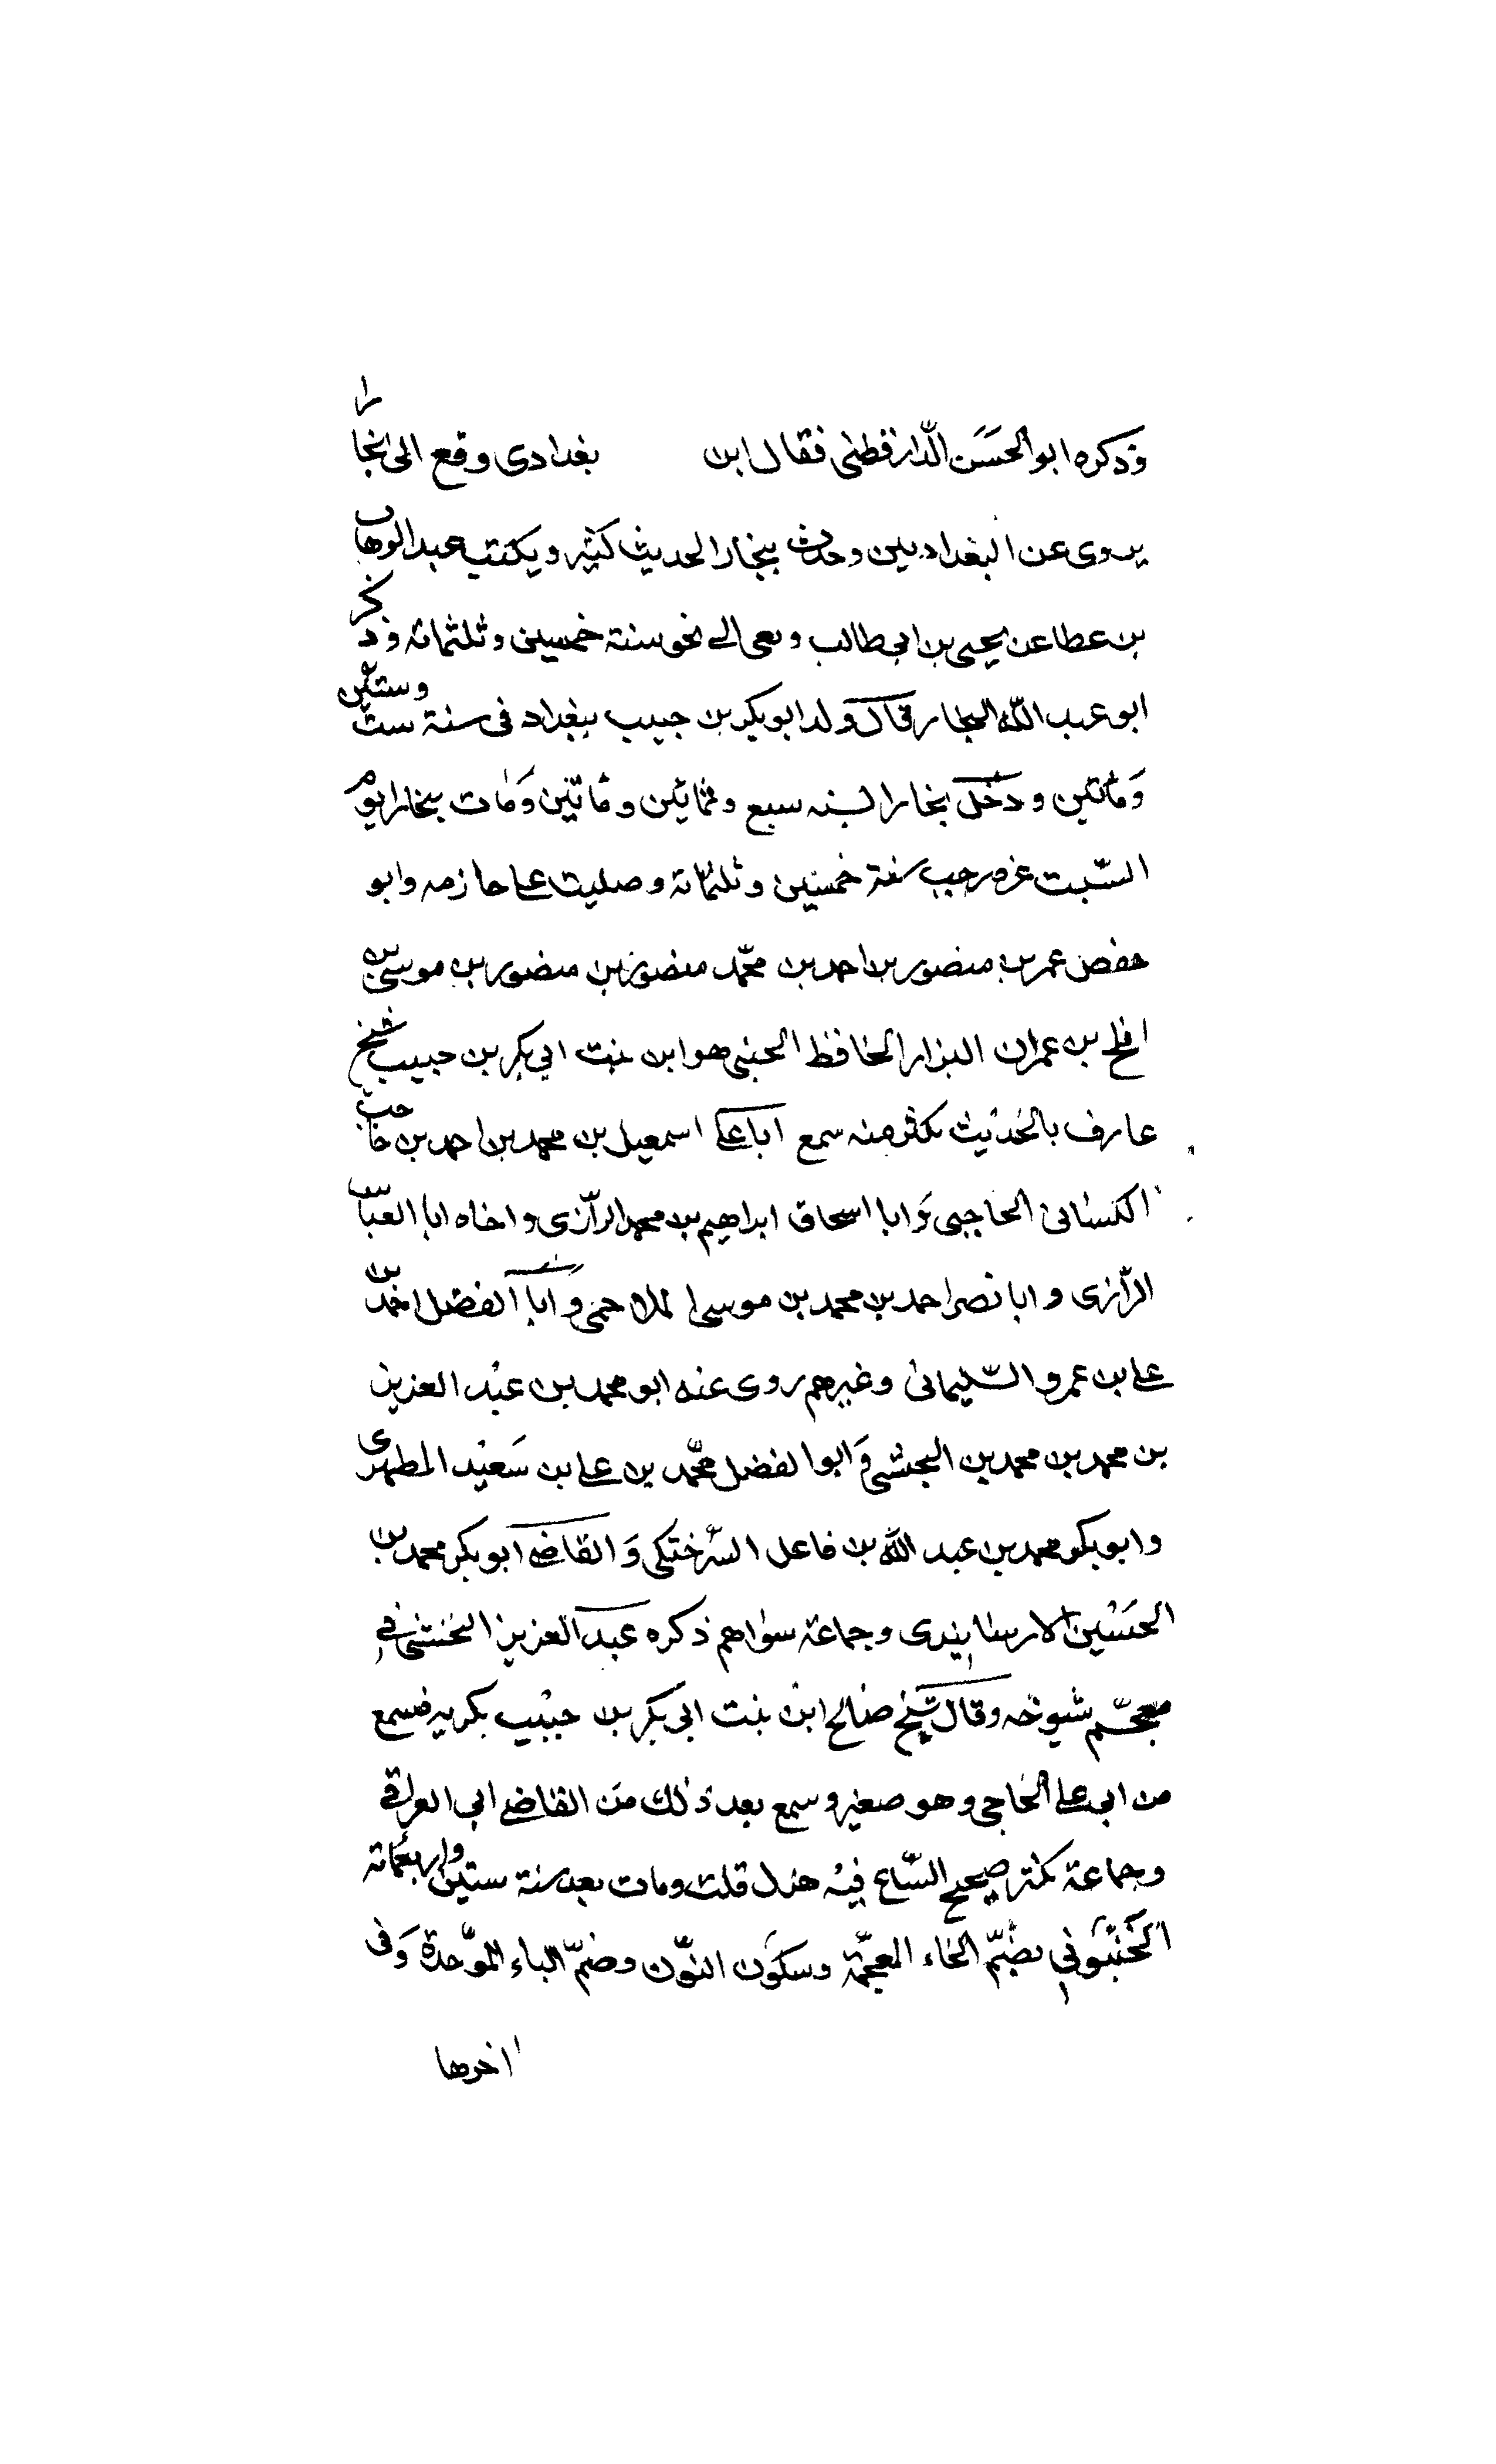 وذكره ابو الحَسَن الدّارقطنى فقال ابن بغدادى وقع الى بخارا
يروى عن البغداديين وحدث ببخارا لحديث كثير ويكتب عبد الوهاب
بن عطا عن يحيى بن ابى طالب ونعى الى نحو سنة خمسين وثلثمائة وذكر
ابو عبد الله البخار قال ولد ابو بكر بن حبيب ببغداد فى سنة ست وستين
وَمائتين ودخل بخارا لسنه سبع وثمانين ومائتين وَمات ببخارا يوم
السّبت غره رجب سنة خمسين وثلثمائة وصليت على حازمه وابو
حفص عمر بن منصور بن احمد بن محمّد منصور بن منصور بن موسى بن
افلح بن عمران البزار الحافظ الخنبى هو ابن بنت ابي بكر بن حبيب شيخ
عارف بالحديث مكثر منه سمع ابا على اسمعيل بن محمد بن احمد بن حاجب
الكشانى الحاجبى وَابا اسحاق ابراهيم بن محمد الرّازى واخاه ابا العبّاس
الرّازى وابا نصر احمد بن محمد بن موسى الملاحمى وَابا الفضل احمد بن
على بن عمرو السّليمانى وغيرهم روى عنه ابو محمد بن عبد العزيز
بن محمد بن محمد بن النخشى وَابو الفضل محمّد بن على بن سَعيد المطهرى
وابو بكر محمد بن عبد الله بن فاعل السّرختكى وَالقاضى ابو بكر محمد بن
الحسَين الارسابيندى وجماعة سواهم ذكره عبد العزيز النخشى فى
معجم شيوخه وقال شيخ صالح ابن بنت ابى بكر بن حبيب بكر به فسمع
من ابى على الحاجى وهو صغير وسمع بعد ذلك من القاضى ابى العراقى
وجماعة مكثر صحيح السّماع فيه هزل قلت ومات بعد سنة ستين واربعمائة
الخُنبُونى بضمّ الخاء المعجمة وسكون النوّن وضمّ الباء الموّحدة وَفى
اخرها